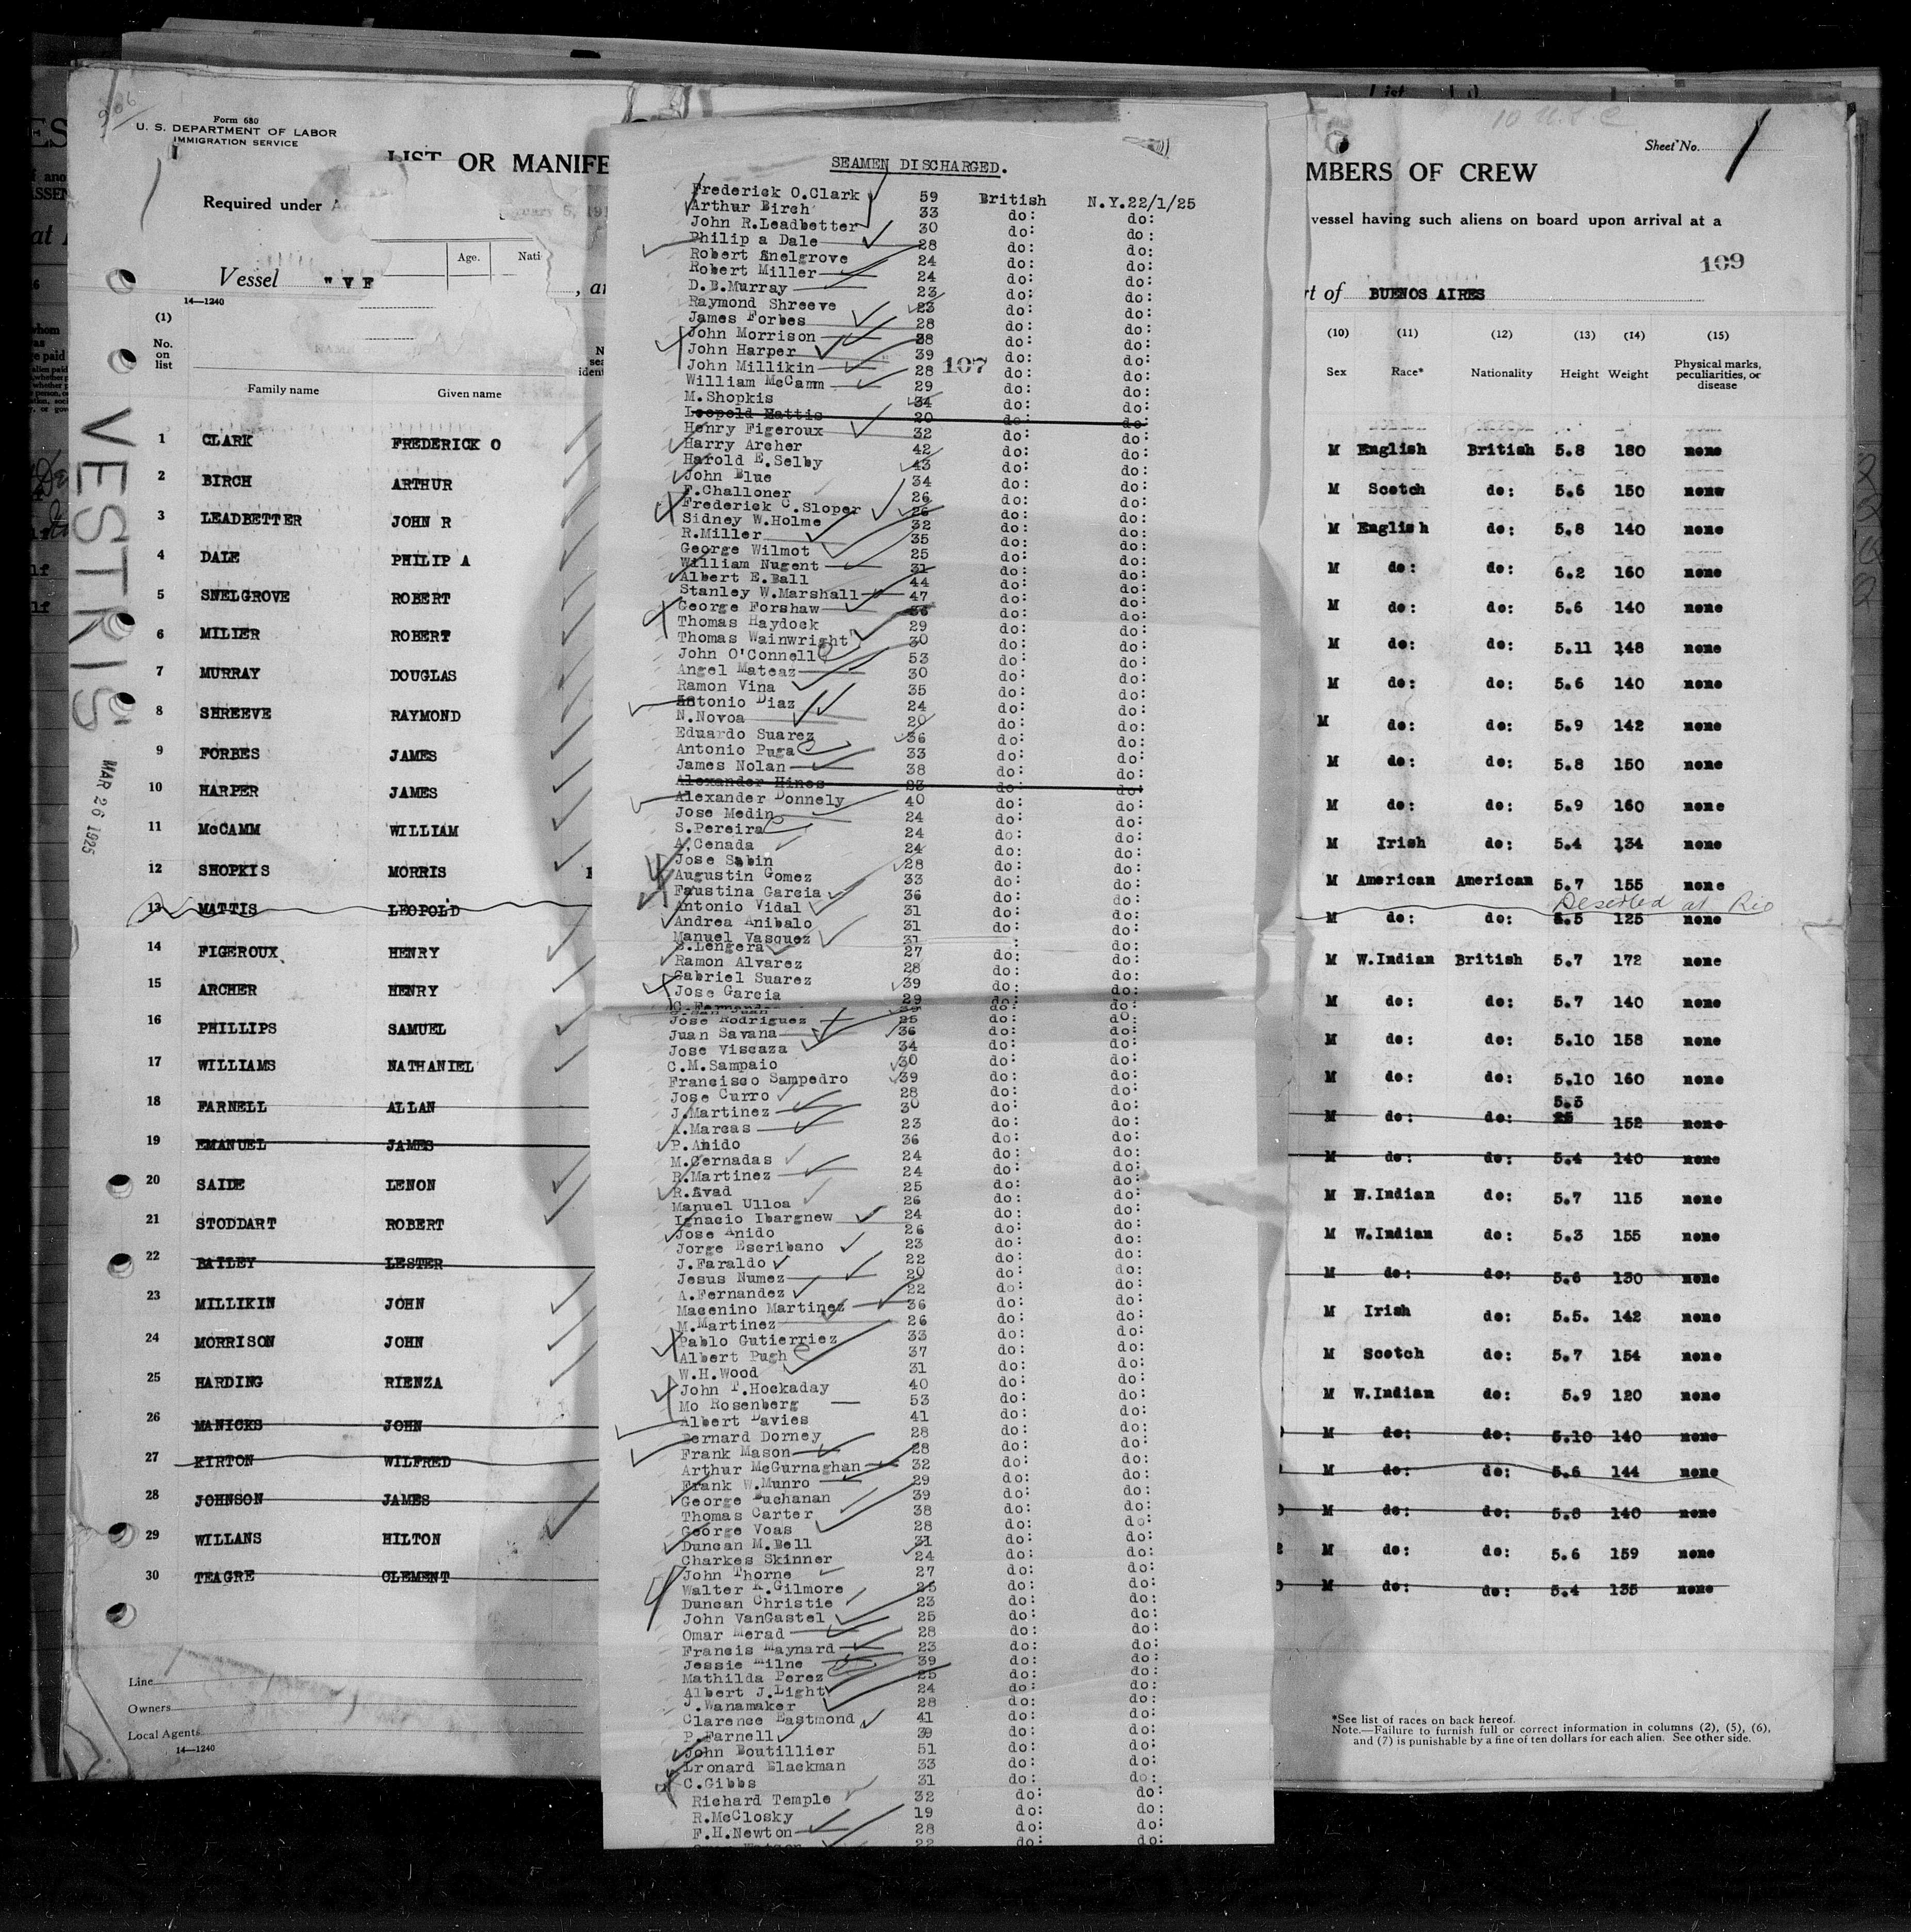 Form 680
U. S. DEPARTMENT OF LABOR
IMMIGRATION SERVICE
LIST OR MANIFE
Required under
Vessel "V E
14—1240
Age.
Nati
(1)
No.
on
list
Family name Given name
1 CLARK FREDERICK O
2 BIRCH ARTHUR
3 LEADBETTER JOHN R
4 DALE PHILIP A
5 SNELGROVE ROBERT
6 MILIER ROBERT
7 MURRAY DOUGLAS
8 SHREEVE RAYMOND
9 FORBES JAMES
10 HARPER JAMES
11 McCAMM WILLIAM
12 SHOPKIS MORRIS
13 MATTIS LEOPOLD
14 FIGEROUX HENRY
15 ARCHER HENRY
16 PHILLIPS SAMUEL
17 WILLIAMS NATHANIEL
18 FARNELL ALLAN
19 EMANUEL JAMES
20 SAIDE LENON
21 STODDART ROBERT
22 BAILEY LESTER
23 MILLIKIN JOHN
24 MORRISON JOHN
25 HARDING RIENZA
26 MANICKS JOHN
27 KIRTON WILFRED
28 JOHNSON JAMES
29 WILLANS HILTON
30 TEAGRE CLEMENT
Line
Owners
Local Agents
14—1240
VESTRIS
MAR 26 1925
SEAMEN DISCHARGED.
Frederick O.Clark 59 British N.Y.22/1/25
Arthur Birch 33 do: do:
John R.Leadbetter 30 do: do:
Philip a Dale 28 do: do:
Robert Snelgrove 24 do: do:
Robert Miller 24 do: do:
D.B.Murray 23 do: do:
Raymond Shreeve 23 do: do:
James Forbes 28 do: do:
John Morrison 38 do: do:
John Harper 39 do: do:
John Millikin 28 do: do:
107
William McCamm 29 do: do:
M.Shopkis 34 do: do:
Leopold Mattis 20 do: do:
Henry Figeroux 32 do: do:
Harry Archer 42 do: do:
Harold E.Selby 43 do: do:
John Blue 34 do: do:
F.Challoner 26 do: do:
Frederick C.Sloper 26 do: do:
Sidney W.Holme 32 do: do:
R.Miller 35 do: do:
George Wilmot 25 do: do:
William Nugent 31 do: do:
Albert E.Ball 44 do: do:
Stanley W.Marshall 47 do: do:
George Forshaw do: do:
Thomas Haydock 29 do: do:
Thomas Wainwright 30 do: do:
John O'Connell 53 do: do:
Angel Mateaz 30 do: do:
Ramon Vina 35 do: do:
Antonio Diaz 24 do: do:
N.Novoa 20 do: do:
Eduardo Suarez 36 do: do:
Antonio Puga 33 do: do:
James Nolan 38 do: do:
Alexander Hines 23 do: do:
Alexander Donnely 40 do: do:
Jose Medin 24 do: do:
S.Pereira 24 do: do:
A,Cenada 24 do: do:
Jose Sabin 28 do: do:
Augustin Gomez 33 do: do:
Faustina Garcia 36 do: do:
Antonio Vidal 31 do: do:
Andrea Anibalo 31 do: do:
Manuel Vasquez 31 do:
S.Lengera 27 do: do:
Ramon Alvarez 28 do: do:
Gabriel Suarez 39 do: do:
Jose Garcia 29 do: do:
Jose Rodriguez 25 do: do:
Juan Savana 36 do: do:
Jose Viscaza 34 do: do:
C.M.Sampaio 30 do: do:
Francisco Sampedro 39 do: do:
Jose Curro 28 do: do:
J.Martinez 30 do: do:
A.Marcas 23 do: do:
P.Anido 36 do: do:
M.Cernadas 24 do: do:
R.Martinez 24 do: do:
R.Avad 25 do: do:
Manuel Ulloa 26 do: do:
Ignacio Ibargnew 24 do: do:
Jose Anido 26 do: do:
Jorge Escribano 23 do: do:
J.Faraldo 22 do: do:
Jesus Numez 20 do: do:
A.Fernandez 22 do: do:
Macenino Martinez 36 do: do:
M.Martinez 26 do: do:
Pablo Gutierriez 33 do: do:
Albert Pugh 37 do: do:
W.H.Wood 31 do: do:
John T.Hockaday 40 do: do:
Mo Rosenberg 53 do: do:
Albert Davies 41 do: do:
Bernard Dorney 28 do: do:
Frank Mason 28 do: do:
Arthur McGurnaghan 32 do: do:
Frank W.Munro 29 do: do:
George Buchanan 39 do: do:
Thomas Carter 38 do: do:
George Voas 28 do: do:
Duncan M.Bell 31 do: do:
Charkes Skinner 24 do: do:
John Thorne 27 do: do:
Walter R.Gilmore 25 do: do:
Duncan Christie 23 do: do:
John VanGastel 25 do: do:
Omar Merad 28 do: do:
Francis Maynard 23 do: do:
Jessie Milne 39 do: do:
Mathilda Perez 25 do: do:
Albert J.Light 24 do: do:
J.Wanamaker 28 do: do:
Clarence Eastmond 41 do: do:
P.Farnell 39 do: do:
John Boutillier 51 do: do:
Lronard Blackman 33 do: do:
C.Gibbs 31 do: do:
Richard Temple 32 do: do:
R.McClosky 19 do: do:
F.H.Newton 28 do: do:
22 do: do:
Sheet No. 1
MBERS OF CREW
vessel having such aliens on board upon arrival at a
109
rt of BUENOS AIRES
(10) (11) (12) (13) (14) (15)
Sex Race* Nationality Height Weight Physical marks, peculiarities, or disease
M English British 5.8 180 none
M Scotch do: 5.6 150 none
M English do: 5.8 140 none
M do: do: 6.2 160 none
M do: do: 5.6 140 none
M do: do: 5.11 148 none
M do: do: 5.6 140 none
M do: do: 5.9 142 none
M do: do: 5.8 150 none
M do: do: 5.9 160 none
M Irish do: 5.4 134 none
M American American 5.7 155 none
Deserted at Rio
M do: do: 5.5 125 none
M W.Indian British 5.7 172 none
M do: do: 5.7 140 none
M do: do: 5.10 158 none
M do: do: 5.10 160 none
5.3
M do: do: 25 152 none
M do: do: 5.4 140 none
M W.Indian do: 5.7 115 none
M W.Indian do: 5.3 155 none
M do: do: 5.6 130 none
M Irish do: 5.5. 142 none
M Scotch do: 5.7 154 none
M W.Indian do: 5.9 120 none
M do: do: 5.10 140 none
M do: do: 5.6 144 none
M do: do: 5.8 140 none
M do: do: 5.6 159 none
M do: do: 5.4 135 none
*See list of races on back hereof.
Note.—Failure to furnish full or correct information in columns (2), (5), (6),
and (7) is punishable by a fine of ten dollars for each alien. See other side.